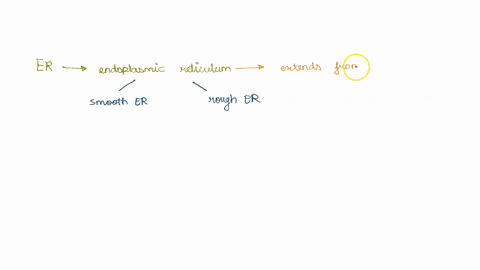 ER → endoplasmic reticulum → extends from
smooth ER rough ER